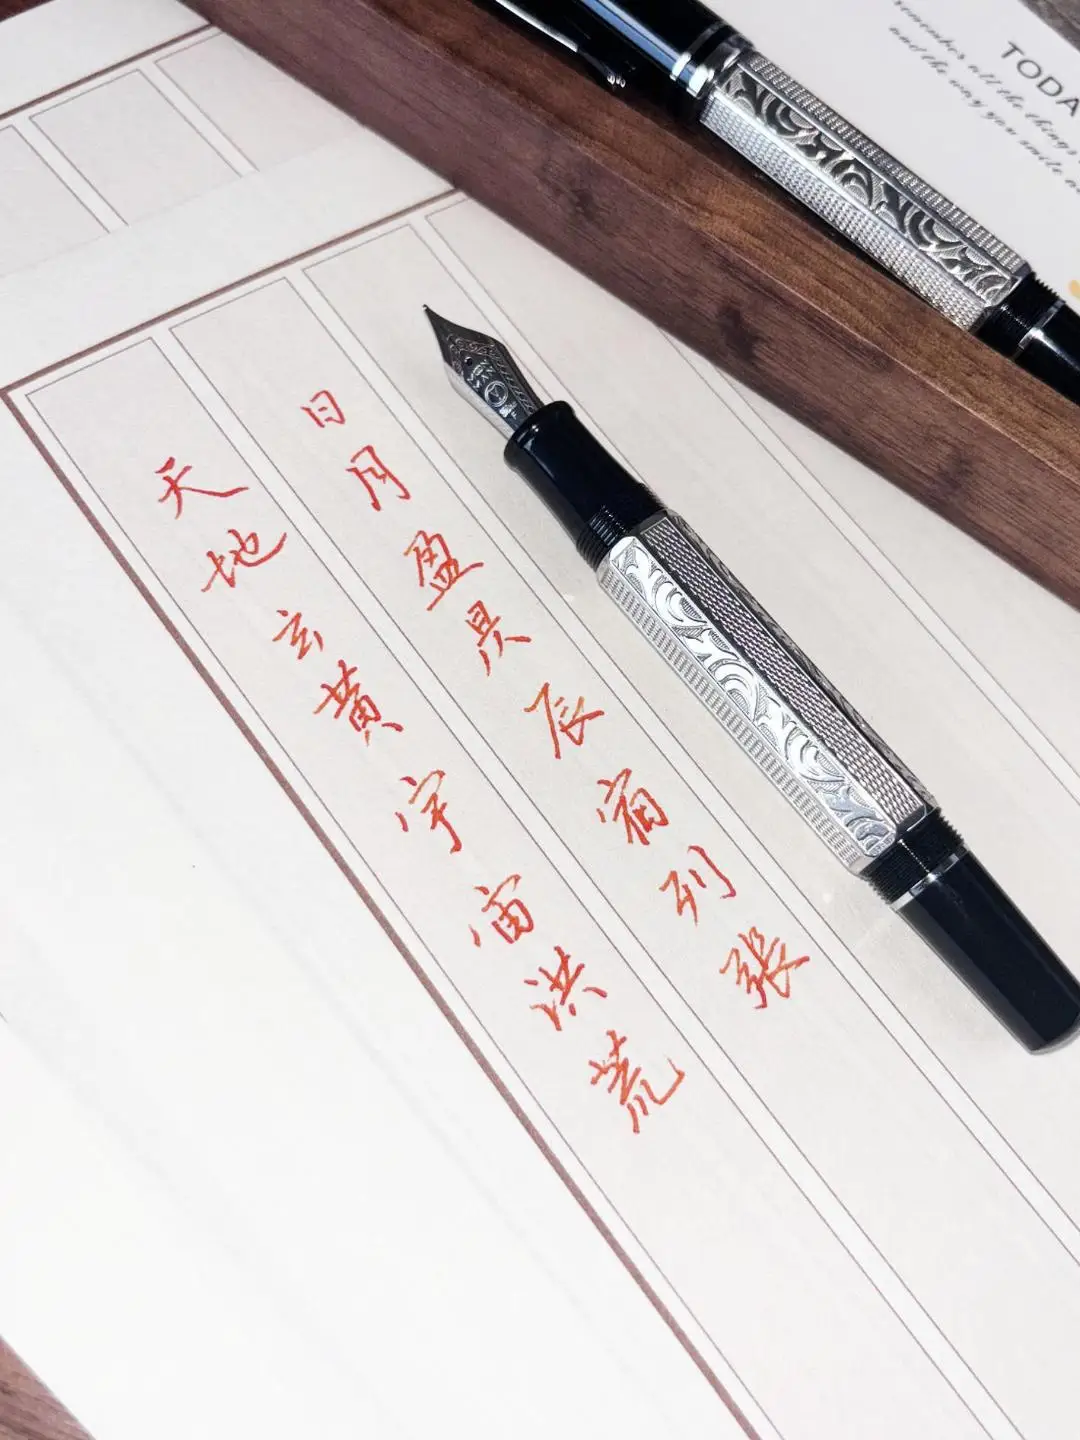 天地玄黄宇宙洪荒
日月盈昃辰宿列張
TODA
remember all the things
and the way you smile